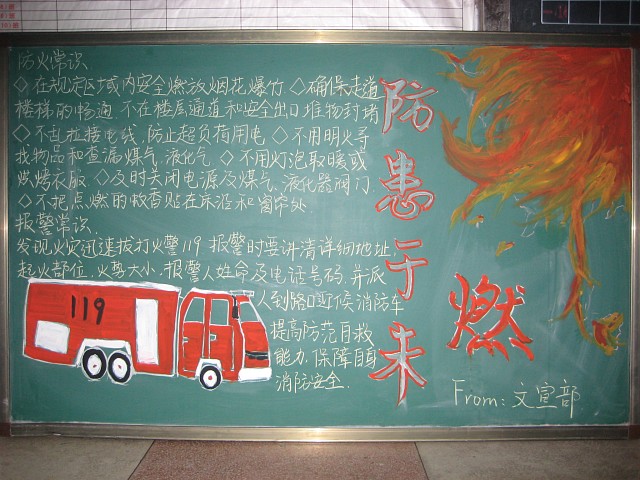 防火常识
◇在规定区域内安全燃放烟花爆竹 ◇确保走道
楼梯的畅通 不在楼层通道和安全出口堆物封堵
◇不乱拉接电线,防止超负指用电 ◇不用明火寻
找物品和查漏煤气,液化气. ◇不用灯泡取暖或
燃烤衣服 ◇及时关闭电源及煤气,液化器阀门.
◇不把点燃的蚊香贴在床沿和窗帘处
报警常识.
发现火灾迅速拔打火警119 报警时要讲清详细地址
起火部位,火势大小.报警人姓名及电话号码.并派
人到路口迎候消防车
提高防范自救
能力.保障自身
消防安全.
119
防患于未
燃
From:文宣部